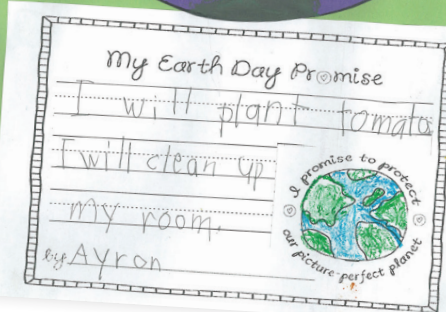 My Earth Day Promise
I will plant tomato
I will clean up
my room.
by Ayron
I promise to protect
our picture-perfect planet